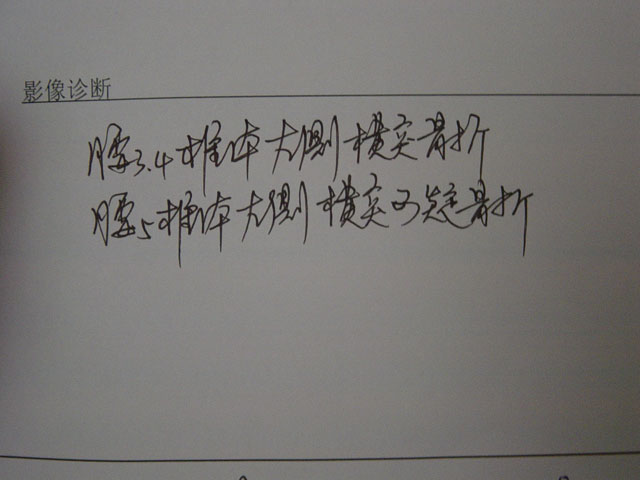 影像诊断
腰3.4椎体左侧横突骨折
腰5椎体左侧横突可疑骨折